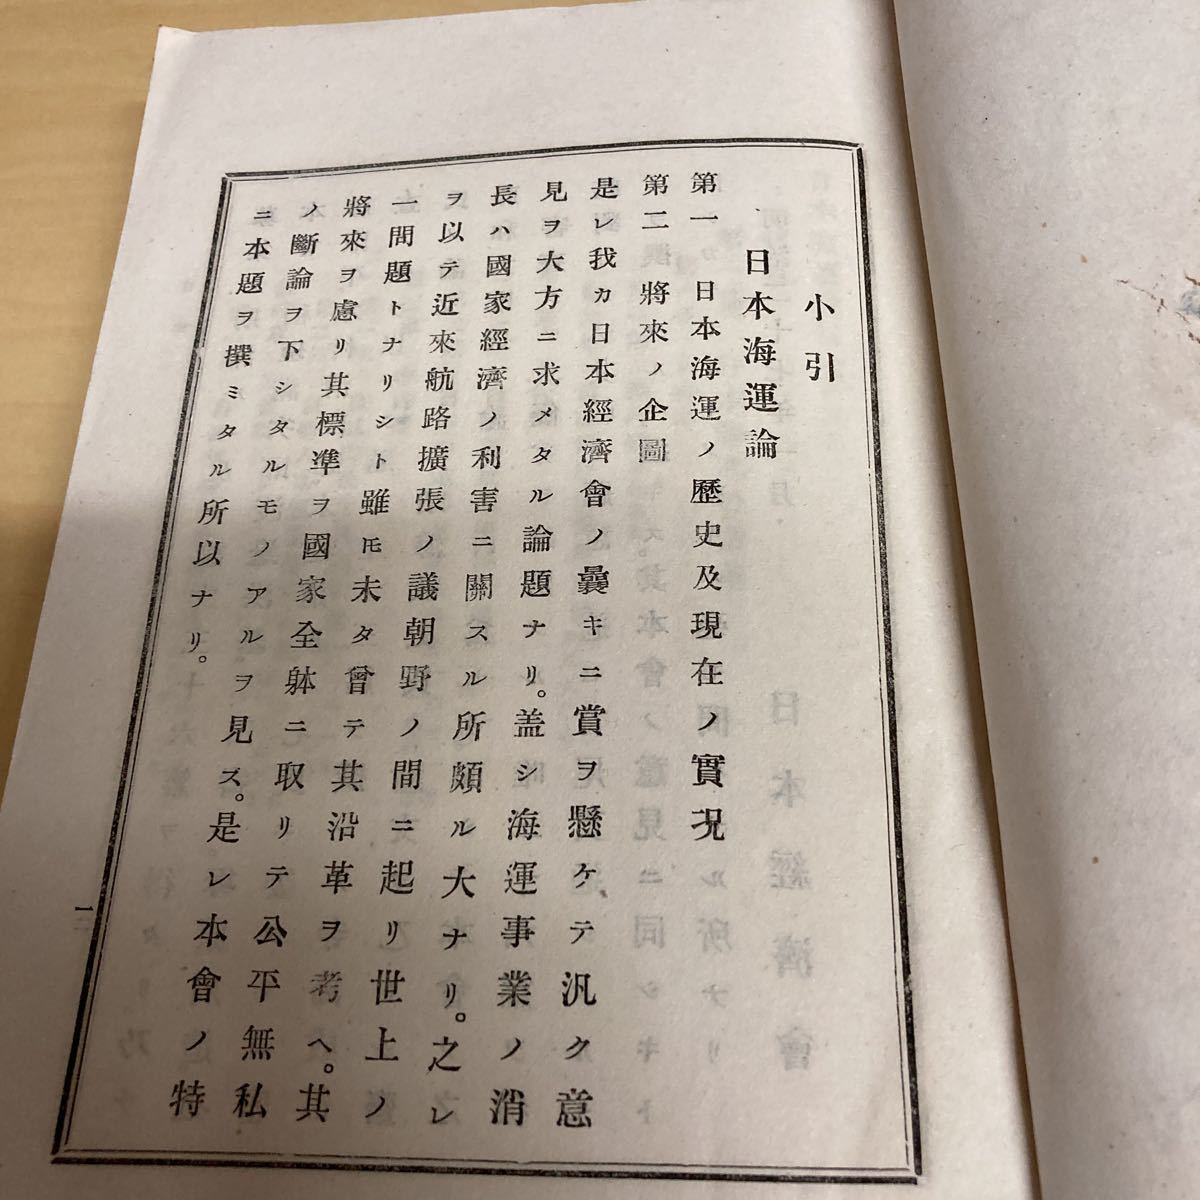 小引
日本海運論
第一 日本海運ノ歷史及現在ノ實況
第二 將來ノ企圖
是レ我カ日本經濟會ノ曩キニ賞ヲ懸ケテ汎ク意
見ヲ大方ニ求メタル論題ナリ。盖シ海運事業ノ消
長ハ國家經濟ノ利害ニ關スル所頗ル大ナリ。之レ
ヲ以テ近來航路擴張ノ議朝野ノ間ニ起リ世上ノ
一問題トナリシト雖𪜈未タ曾テ其沿革ヲ考ヘ。其
將來ヲ慮リ其標準ヲ國家全躰ニ取リテ公平無私
ノ斷論ヲ下シタルモノアルヲ見ス。是レ本會ノ特
ニ本題ヲ撰ミタル所以ナリ。
一